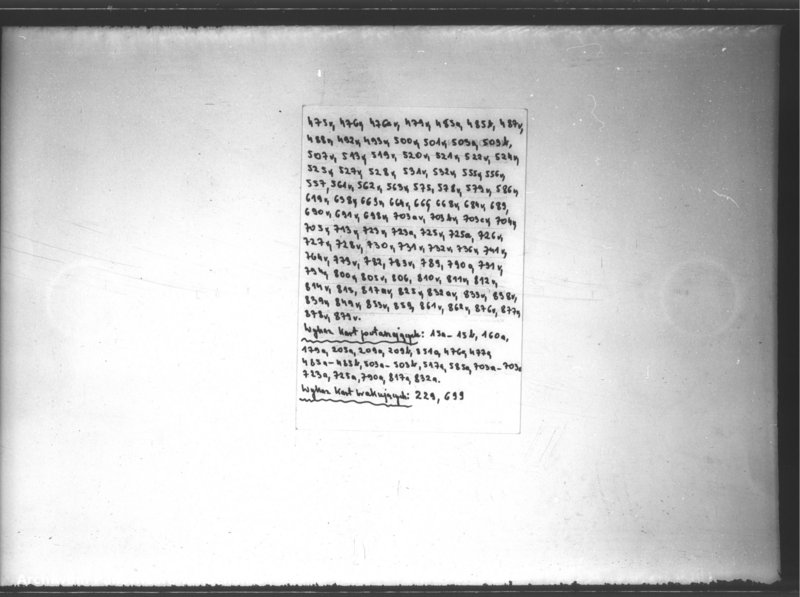 475v, 476v, 476av, 479v, 483a, 485b, 487v,
488v, 492v, 493v, 500v, 501v, 503a, 503b,
507v, 513v, 519v, 520v, 521v, 522v, 524v,
525v, 527v, 528v, 531v, 532v, 555v, 556v,
557, 561v, 562v, 563v, 575, 578v, 579v, 586v,
619v, 638v, 663v, 664v, 665, 668v, 684v, 689,
690v, 691v, 698v, 703av, 703bv, 703cv, 704v,
705v, 713v, 723v, 723a, 725v, 725a, 726v,
727v, 728v, 730v, 731v, 732v, 736v, 741v,
764v, 779v, 782, 783v, 789, 790a, 791v,
794v, 800v, 805v, 806, 810v, 811v, 812v,
814v, 815, 817av, 825v, 832av, 833v, 838v,
839v, 849v, 853v, 859, 861v, 862v, 876v, 877v,
878v, 879v.
Wykaz kart powtarzających: 15a-15b, 160a,
179a, 203a, 209a, 209b, 351a, 476a, 477a,
485a-485b, 503a-503b, 517a, 583a, 703a-703c
723a, 725a, 790a, 817a, 832a.
Wykaz kart brakujących: 229, 699